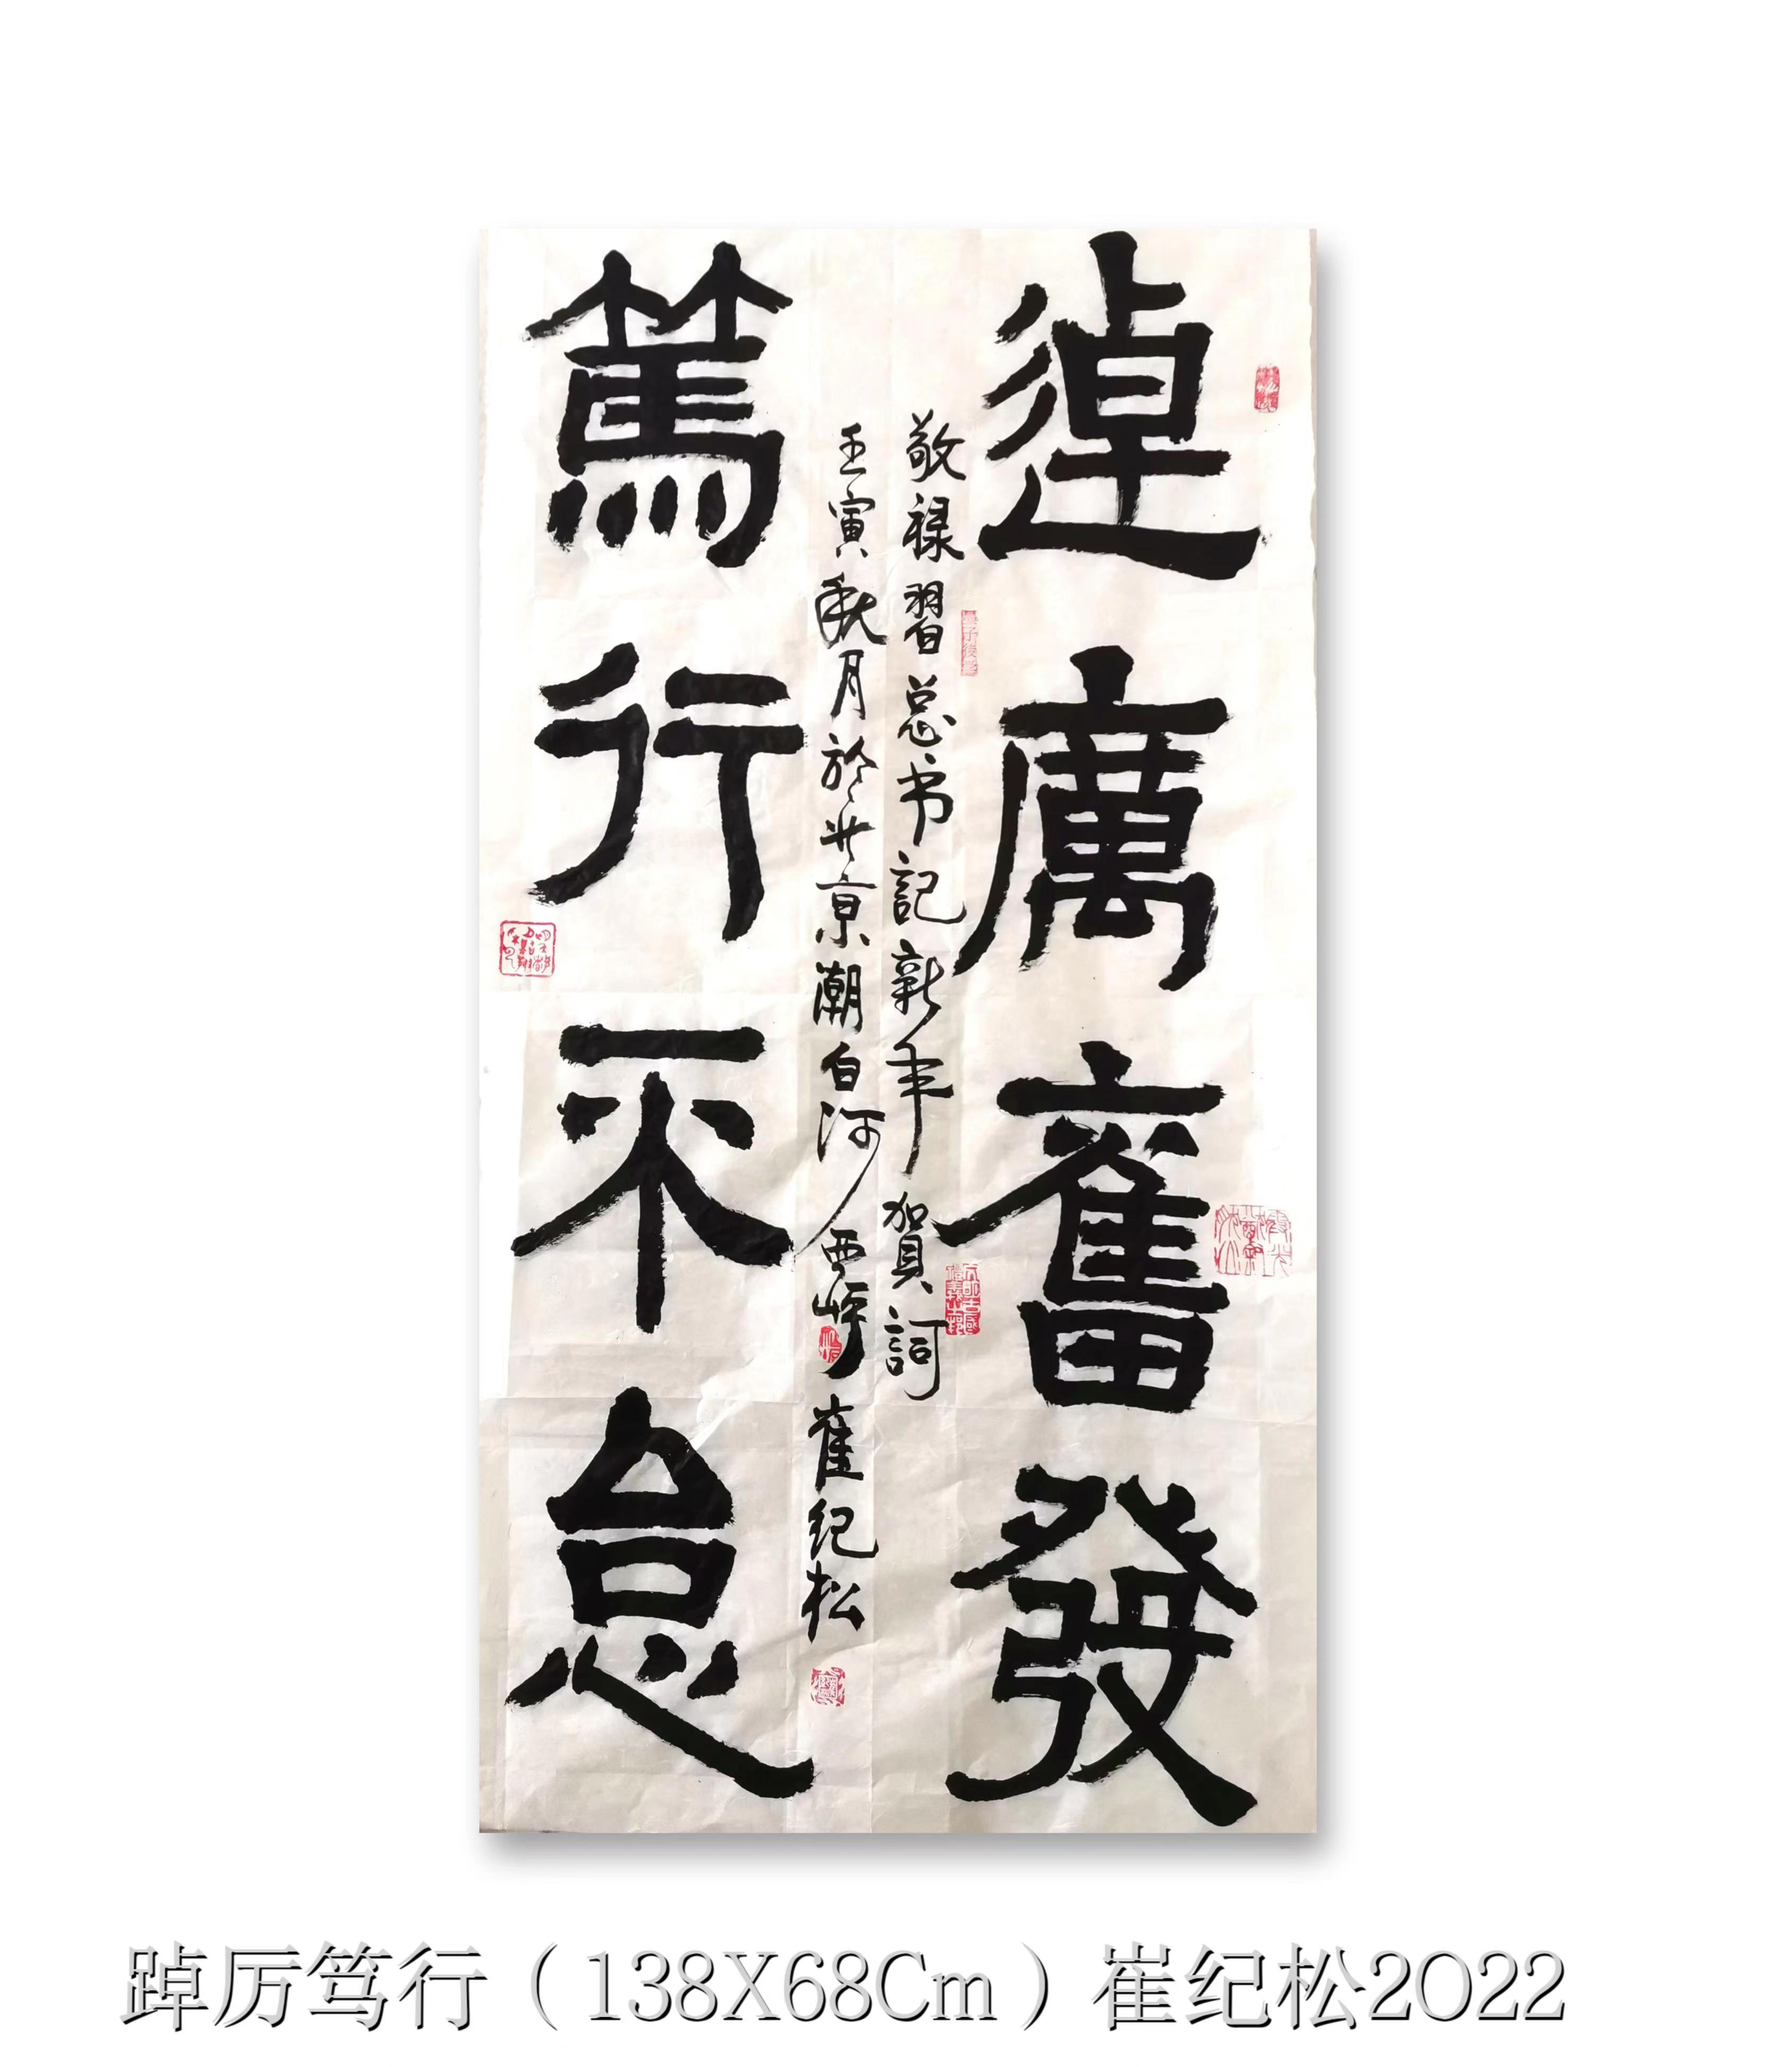 逴厲奮發
敬禄習总书記新年賀詞
壬寅秋月於北京潮白河西岸崔纪松
篤行不怠
踔厉笃行（138X68Cm）崔纪松2022